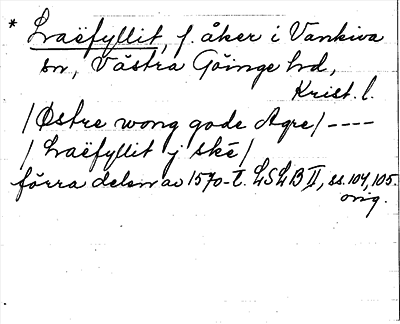 * Lvaëfyllit, f. åker i Vankiva
sn, Västra Göinge hd,
Krist. l.
/Østre wong gode Agre/ ----
/ Lvaëfyllit j ské/
förra delen av 1570-t. LSLB II, ss. 104, 105.
orig.